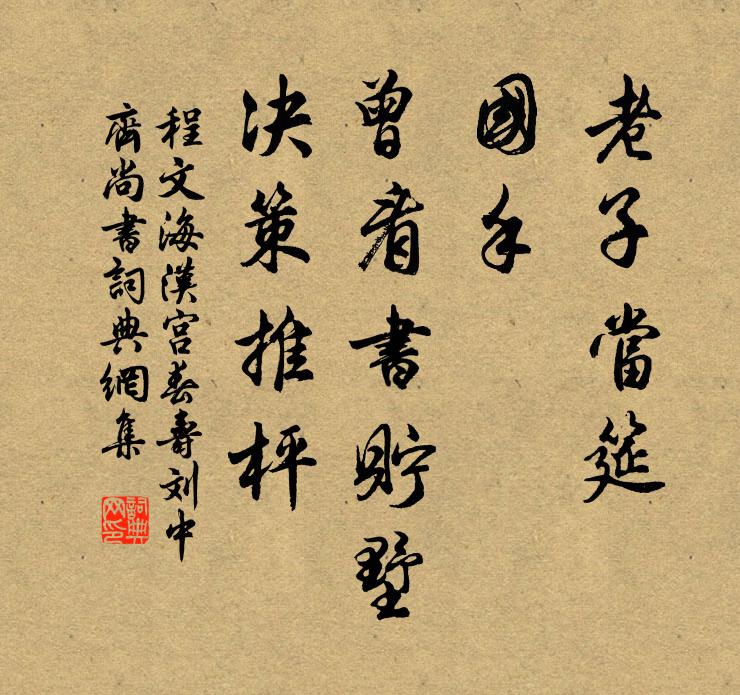 老子當筵
國手
曾看書貯墅
决策推枰
程文海漢宮春壽刘中
齋尚書詞典網集
詞典網印